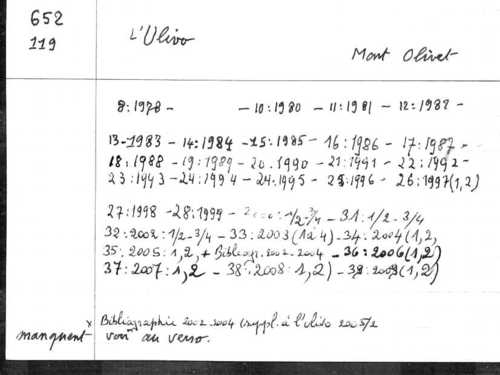 652
119
L'Ulivo
Mont Olivet
8:1978 - - 10:1980 - 11:1981 - 12:1982 -
13-1983 - 14:1984 - 15:1985 - 16:1986 - 17:1987 -
18:1988 - 19:1989 - 20.1990 - 21:1991 - 22:1992 -
23:1993 - 24:1994 - 24:1995 - 25:1996 - 26:1997(1,2)
27:1998 - 28:1999 - 1/2-3/4 - 31:1/2-3/4
32:2002:1/2-3/4 - 33:2003(1à4) - 34:2004(1,2,
35:2005:1,2,+ Bibliogr. 2002-2004 - 36:2006(1,2)
37:2007:1,2 - 38:2008:1,2) - 39:2009(1,2)
x Bibliographie 2002-2004 (suppl. à l'Ulivo 2005/2
manquent voir au verso.